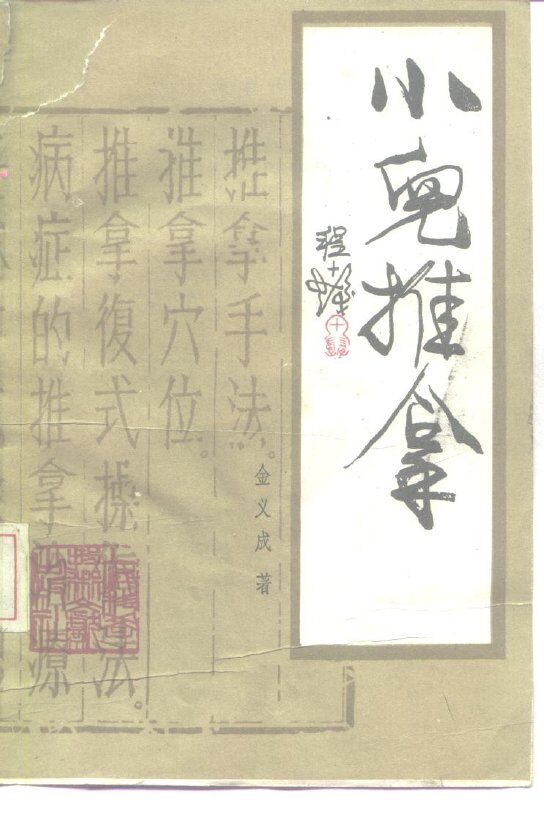 小兒推拿
程十髮
金义成 著
推拿手法。
推拿穴位。
推拿復式操作法。
病症的推拿